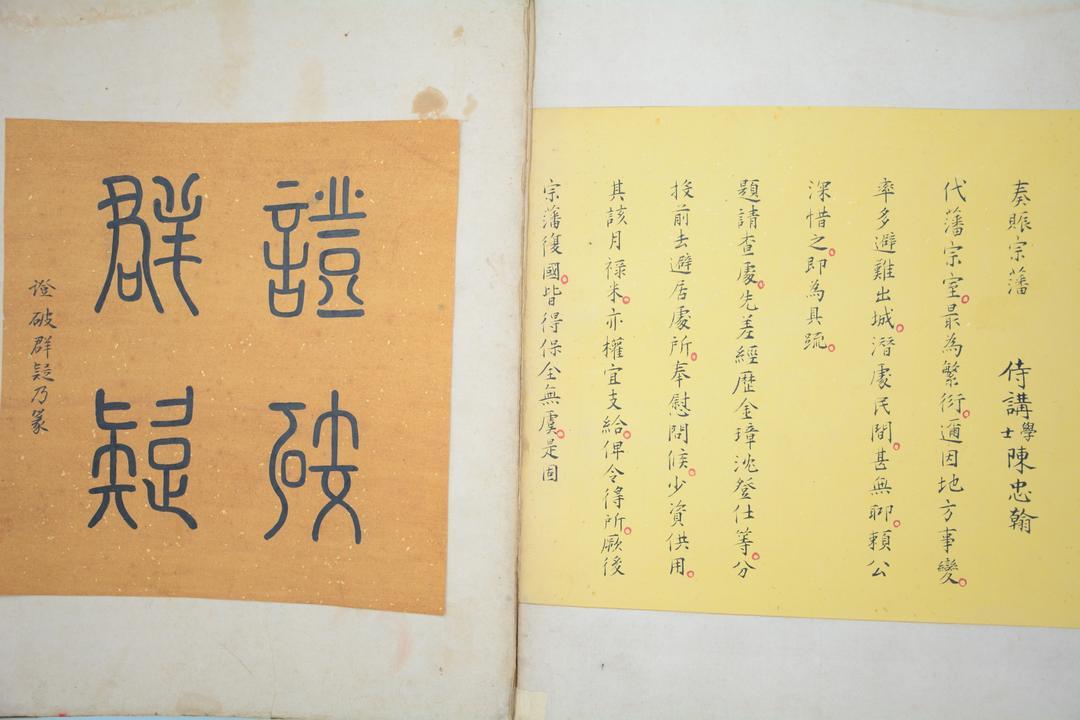 奏賑宗藩　侍講學士陳忠翰
代藩宗室。最為繁衍。邇因地方事變。
率多避難出城。潛處民間。甚無聊。賴公
深惜之。即為具疏。
題請查處。先差經歷金璋沈登仕等。分
投前去避居處所。奉慰問候。少資供用。
其該月祿米。亦權宜支給。俾令得所。厥後
宗藩復國。皆得保全無虞。是固
證破
群疑
證破群疑乃篆